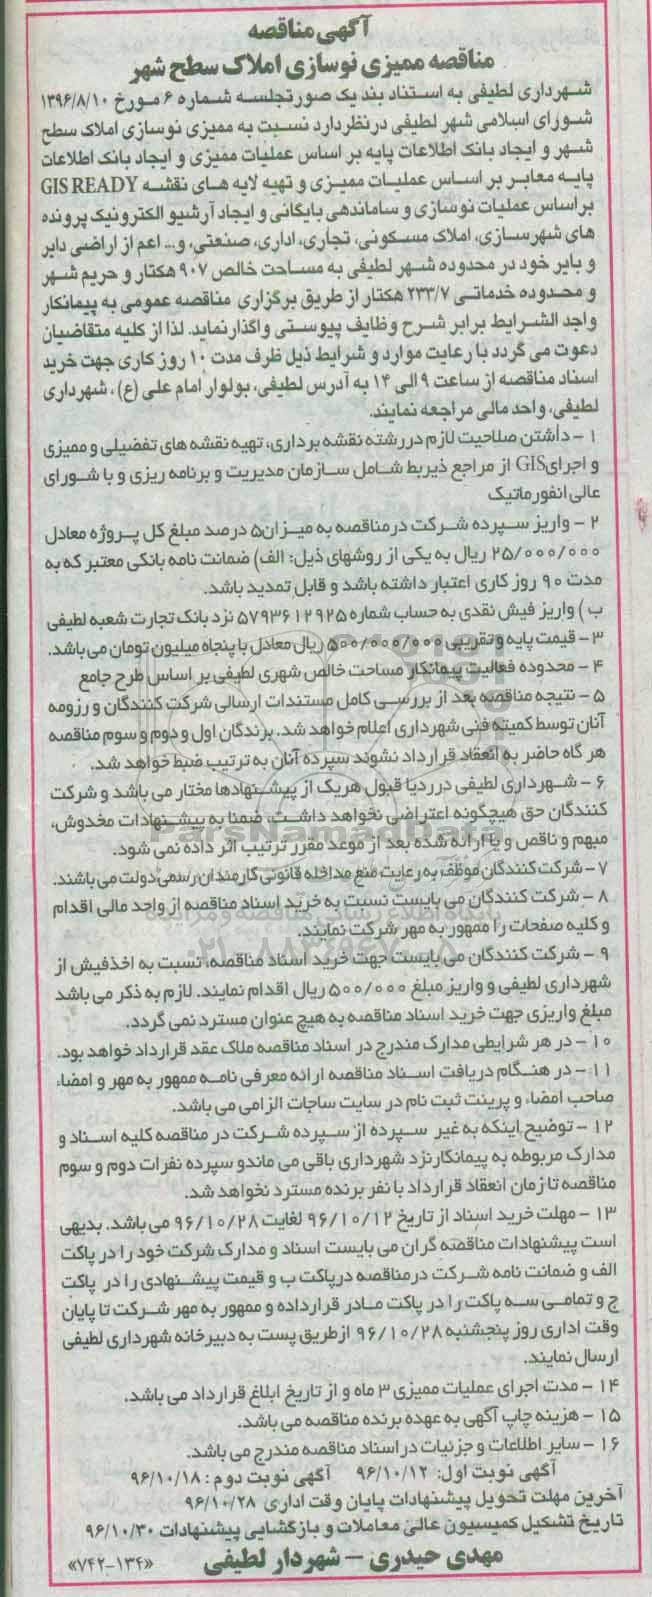 آگهی مناقصه
مناقصه ممیزی نوسازی املاک سطح شهر
شهرداری لطیفی به استناد بند یک صورتجلسه شماره ۶ مورخ ۱۳۹۶/۸/۱۰
شورای اسلامی شهر لطیفی درنظردارد نسبت به ممیزی نوسازی املاک سطح
شهر و ایجاد بانک اطلاعات پایه بر اساس عملیات ممیزی و ایجاد بانک اطلاعات
پایه معابر بر اساس عملیات ممیزی و تهیه لایه های نقشه GIS READY
براساس عملیات نوسازی و ساماندهی بایگانی و ایجاد آرشیو الکترونیک پرونده
های شهرسازی، املاک مسکونی، تجاری، اداری، صنعتی، و... اعم از اراضی دایر
و بایر خود در محدوده شهر لطیفی به مساحت خالص ۹۰۷ هکتار و حریم شهر
و محدوده خدماتی ۲۳۳/۷ هکتار از طریق برگزاری مناقصه عمومی به پیمانکار
واجد الشرایط برابر شرح وظایف پیوستی واگذارنماید. لذا از کلیه متقاضیان
دعوت می گردد با رعایت موارد و شرایط ذیل ظرف مدت ۱۰ روز کاری جهت خرید
اسناد مناقصه از ساعت ۹ الی ۱۴ به آدرس لطیفی، بولوار امام علی (ع)، شهرداری
لطیفی، واحد مالی مراجعه نمایند.
۱ - داشتن صلاحیت لازم دررشته نقشه برداری، تهیه نقشه های تفضیلی و ممیزی
و اجرای GIS از مراجع ذیربط شامل سازمان مدیریت و برنامه ریزی و با شورای
عالی انفورماتیک
۲ - واریز سپرده شرکت درمناقصه به میزان ۵ درصد مبلغ کل پروژه معادل
۲۵/۰۰۰/۰۰۰ ریال به یکی از روشهای ذیل: الف) ضمانت نامه بانکی معتبر که به
مدت ۹۰ روز کاری اعتبار داشته باشد و قابل تمدید باشد.
ب) واریز فیش نقدی به حساب شماره ۵۷۹۳۶۱۲۹۲۵ نزد بانک تجارت شعبه لطیفی
۳ - قیمت پایه و تقریبی ۵۰۰/۰۰۰/۰۰۰ ریال معادل با پنجاه میلیون تومان می باشد.
۴ - محدوده فعالیت پیمانکار مساحت خالص شهری لطیفی بر اساس طرح جامع
۵ - نتیجه مناقصه بعد از بررسی کامل مستندات ارسالی شرکت کنندگان و رزومه
آنان توسط کمیته فنی شهرداری اعلام خواهد شد. برندگان اول و دوم و سوم مناقصه
هر گاه حاضر به انعقاد قرارداد نشوند سپرده آنان به ترتیب ضبط خواهد شد.
۶ - شهرداری لطیفی درردیا قبول هریک از پیشنهادها مختار می باشد و شرکت
کنندگان حق هیچگونه اعتراضی نخواهد داشت، ضمنا به پیشنهادات مخدوش،
مبهم و ناقص و یا ارائه شده بعد از موعد مقرر ترتیب اثر داده نمی شود.
۷ - شرکت کنندگان موظف به رعایت منع مداخله قانونی کارمندان رسمی دولت می باشند.
۸ - شرکت کنندگان می بایست نسبت به خرید اسناد مناقصه از واحد مالی اقدام
و کلیه صفحات را ممهور به مهر شرکت نمایند.
۹ - شرکت کنندگان می بایست جهت خرید اسناد مناقصه، نسبت به اخذفیش از
شهرداری لطیفی و واریز مبلغ ۵۰۰/۰۰۰ ریال اقدام نمایند. لازم به ذکر می باشد
مبلغ واریزی جهت خرید اسناد مناقصه به هیچ عنوان مسترد نمی گردد.
۱۰ - در هر شرایطی مدارک مندرج در اسناد مناقصه ملاک عقد قرارداد خواهد بود.
۱۱ - در هنگام دریافت اسناد مناقصه ارائه معرفی نامه ممهور به مهر و امضاء
صاحب امضاء و پرینت ثبت نام در سایت ساجات الزامی می باشد.
۱۲ - توضیح اینکه به غیر سپرده از سپرده شرکت در مناقصه کلیه اسناد و
مدارک مربوطه به پیمانکارنزد شهرداری باقی می ماندو سپرده نفرات دوم و سوم
مناقصه تا زمان انعقاد قرارداد با نفر برنده مسترد نخواهد شد.
۱۳ - مهلت خرید اسناد از تاریخ ۹۶/۱۰/۱۲ لغایت ۹۶/۱۰/۲۸ می باشد. بدیهی
است پیشنهادات مناقصه گران می بایست اسناد و مدارک شرکت خود را در پاکت
الف و ضمانت نامه شرکت درمناقصه درپاکت ب و قیمت پیشنهادی را در پاکت
ج و تمامی سه پاکت را در پاکت مادر قرارداده و ممهور به مهر شرکت تا پایان
وقت اداری روز پنجشنبه ۹۶/۱۰/۲۸ ازطریق پست به دبیرخانه شهرداری لطیفی
ارسال نمایند.
۱۴ - مدت اجرای عملیات ممیزی ۳ ماه و از تاریخ ابلاغ قرارداد می باشد.
۱۵ - هزینه چاپ آگهی به عهده برنده مناقصه می باشد.
۱۶ - سایر اطلاعات و جزئیات در اسناد مناقصه مندرج می باشد.
آگهی نوبت اول: ۹۶/۱۰/۱۲ آگهی نوبت دوم: ۹۶/۱۰/۱۸
آخرین مهلت تحویل پیشنهادات پایان وقت اداری ۹۶/۱۰/۲۸
تاریخ تشکیل کمیسیون عالی معاملات و بازگشایی پیشنهادات ۹۶/۱۰/۳۰
مهدی حیدری - شهردار لطیفی
«۷۴۲-۱۳۴»
ParsNamadData
پایگاه اطلاع رسانی مناقصه و مزایده